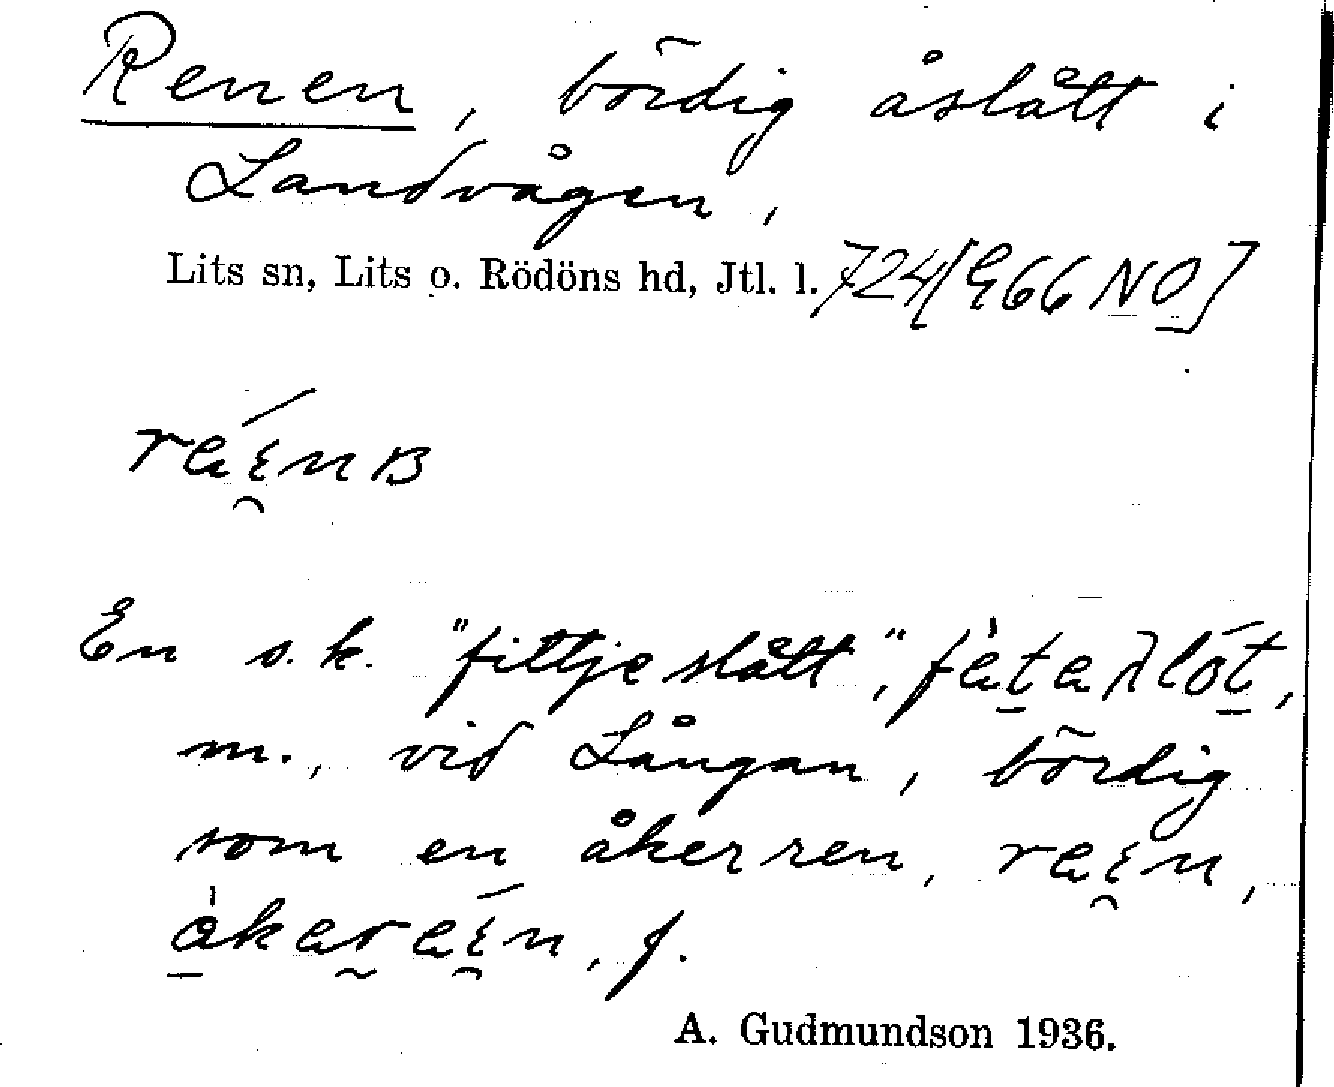 Renen, bördig åslått i
Landvågen,
Lits sn, Lits o. Rödöns hd, Jtl. l. 724 [E66 NO]
En s.k. "fittjeslått",
m., vid Långan, bördig
som en åkerren,
f.
A. Gudmundson 1936.